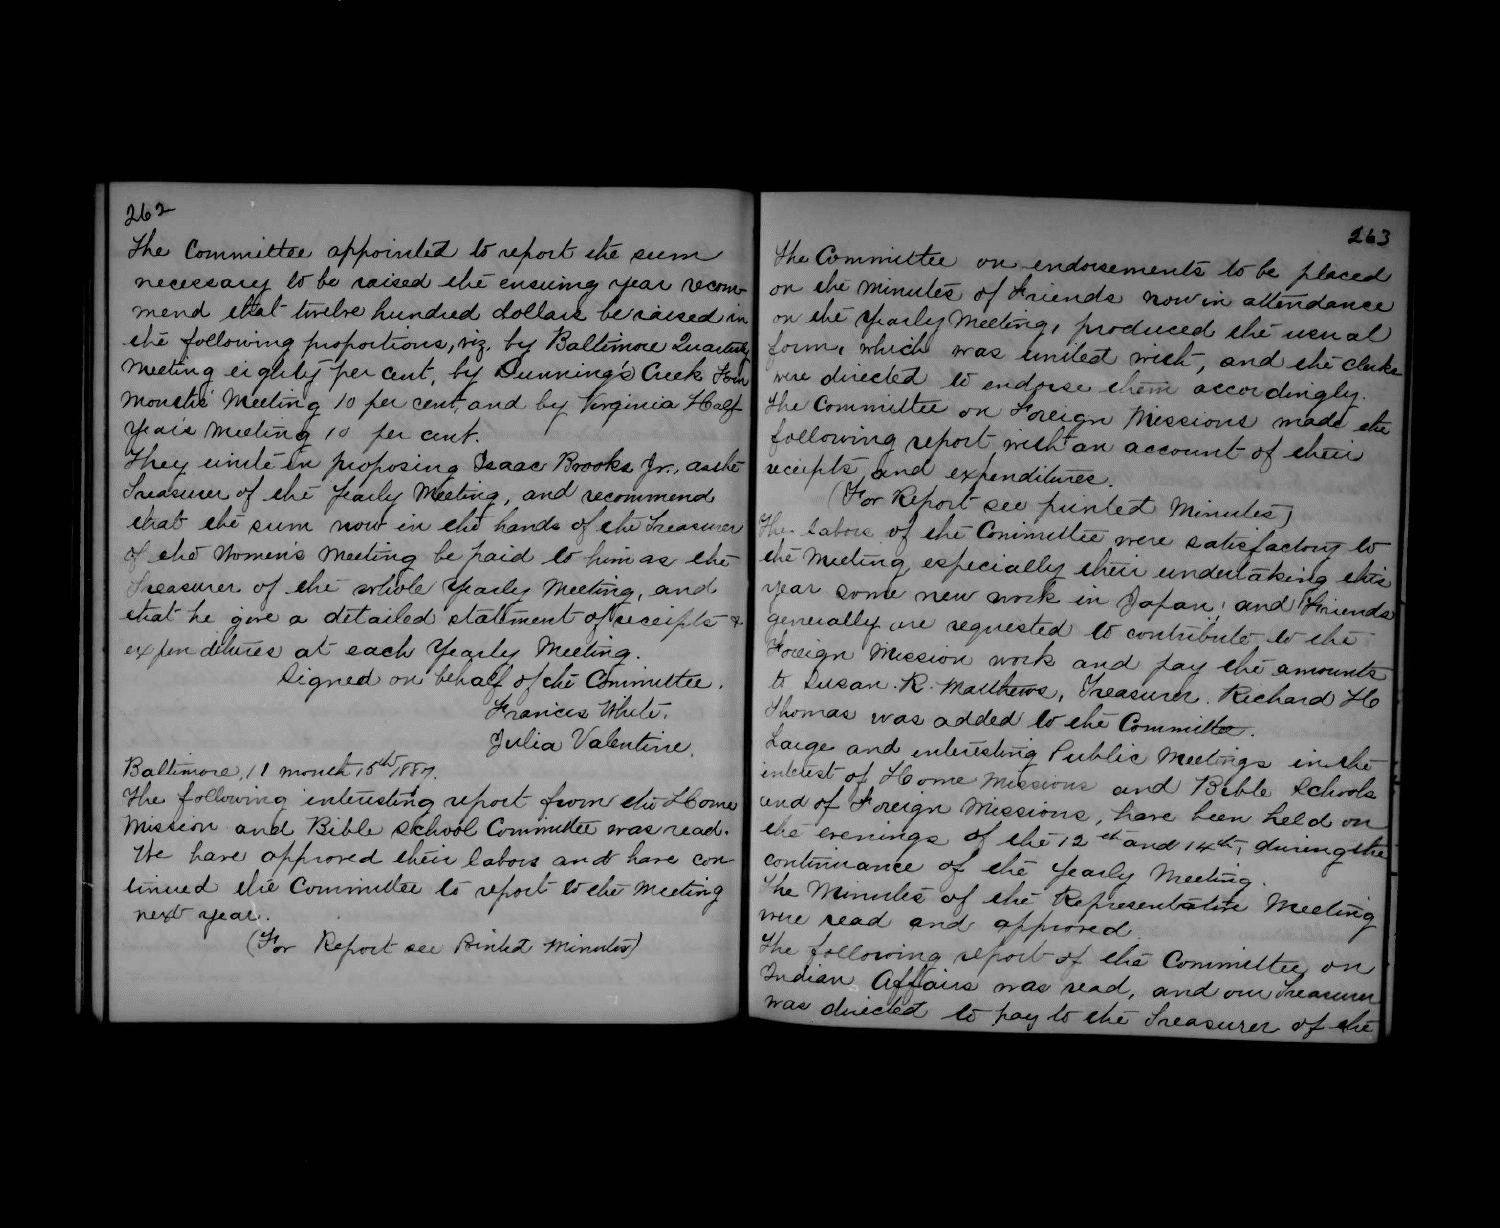 262
The Committee appointed to report the sum
necessary to be raised the ensuing year recom-
mend that twelve hundred dollars be raised in
the following proportions, viz. by Baltimore Quarterly
Meeting eighty per cent, by Dunning's Creek Four
Months' Meeting 10 per cent, and by Virginia Half
Year's Meeting 10 per cent.
They unite in proposing Isaac Brooks Jr., as the
Treasurer of the Yearly Meeting, and recommend
that the sum now in the hands of the Treasurer
of the Women's Meeting be paid to him as the
Treasurer of the whole Yearly Meeting, and
that he give a detailed statement of receipts &
expenditures at each Yearly Meeting.
Signed on behalf of the Committee.
Francis White.
Julia Valentine.
Baltimore, 11 month 15th 1887.
The following interesting report from the Home
Mission and Bible School Committee was read.
We have approved their labors and have con-
tinued the Committee to report to the Meeting
next year.
(For Report see Printed Minutes)
263
The Committee on endorsements to be placed
on the Minutes of Friends now in attendance
on the Yearly Meeting, produced the usual
form, which was united with, and the clerks
were directed to endorse them accordingly.
The Committee on Foreign Missions made the
following report with an account of their
receipts and expenditures.
(For Report see printed Minutes)
The labors of the Committee were satisfactory to
the Meeting, especially their undertaking this
year some new work in Japan; and Friends
generally are requested to contribute to the
Foreign Mission work and pay the amounts
to Susan R. Matthews, Treasurer. Richard H
Thomas was added to the Committee.
Large and interesting Public Meetings in the
interest of Home Missions and Bible Schools
and of Foreign Missions, have been held on
the evenings of the 12th and 14th, during the
continuance of the Yearly Meeting.
The Minutes of the Representative Meeting
were read and approved.
The following report of the Committee on
Indian Affairs was read, and our Treasurer
was directed to pay to the Treasurer of the